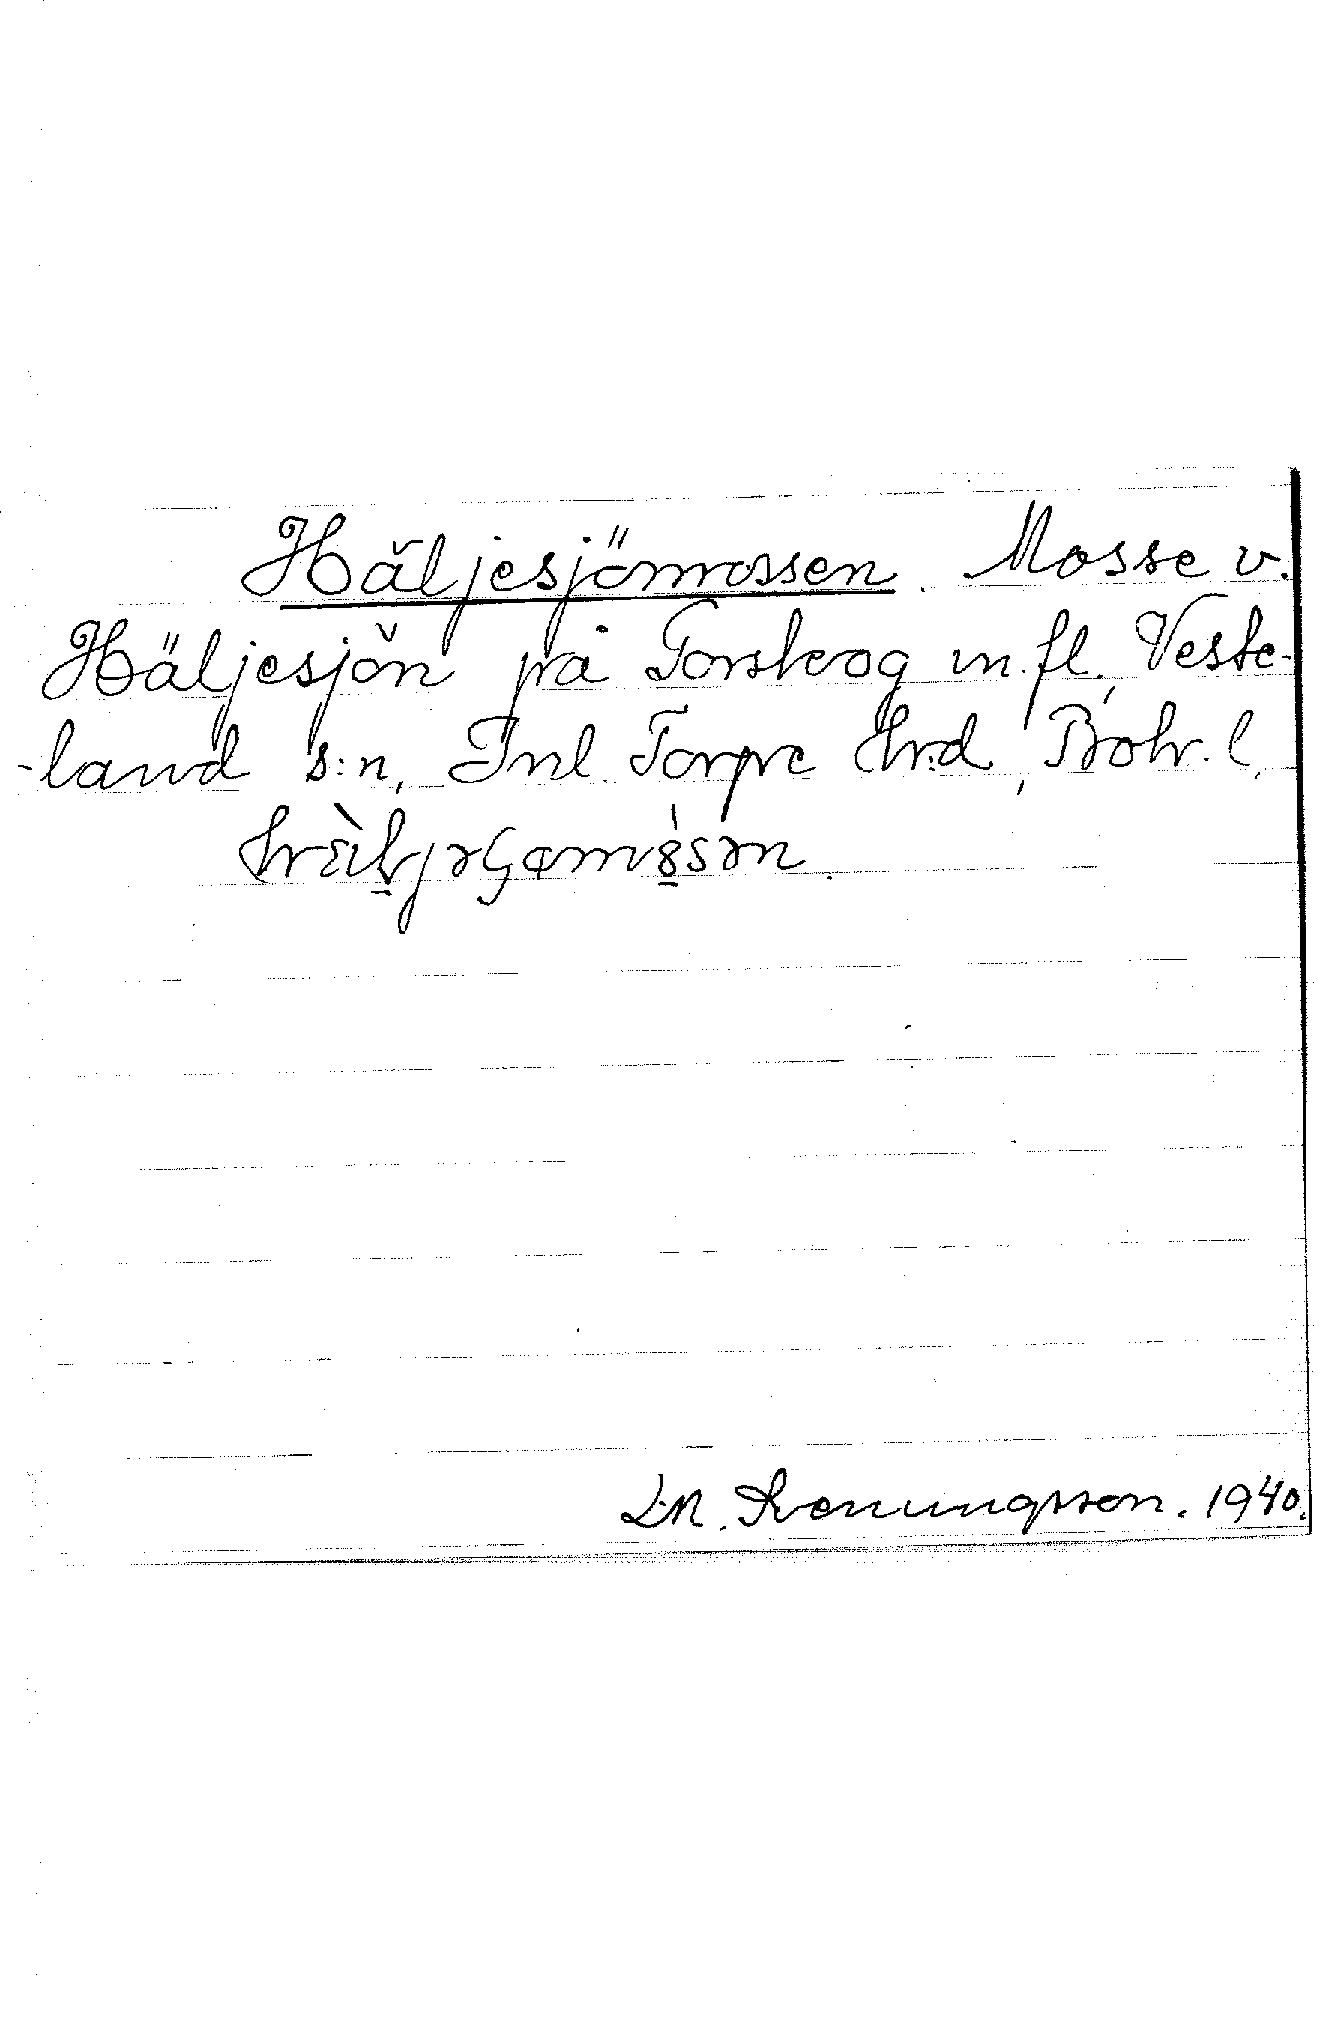 Häljesjömossen. Mosse v.
Häljesjön på Torskog m.fl., Veste-
-land s:n, Inl. Torpe hrd, Boh. l.
L.M. Svenungsson. 1940.